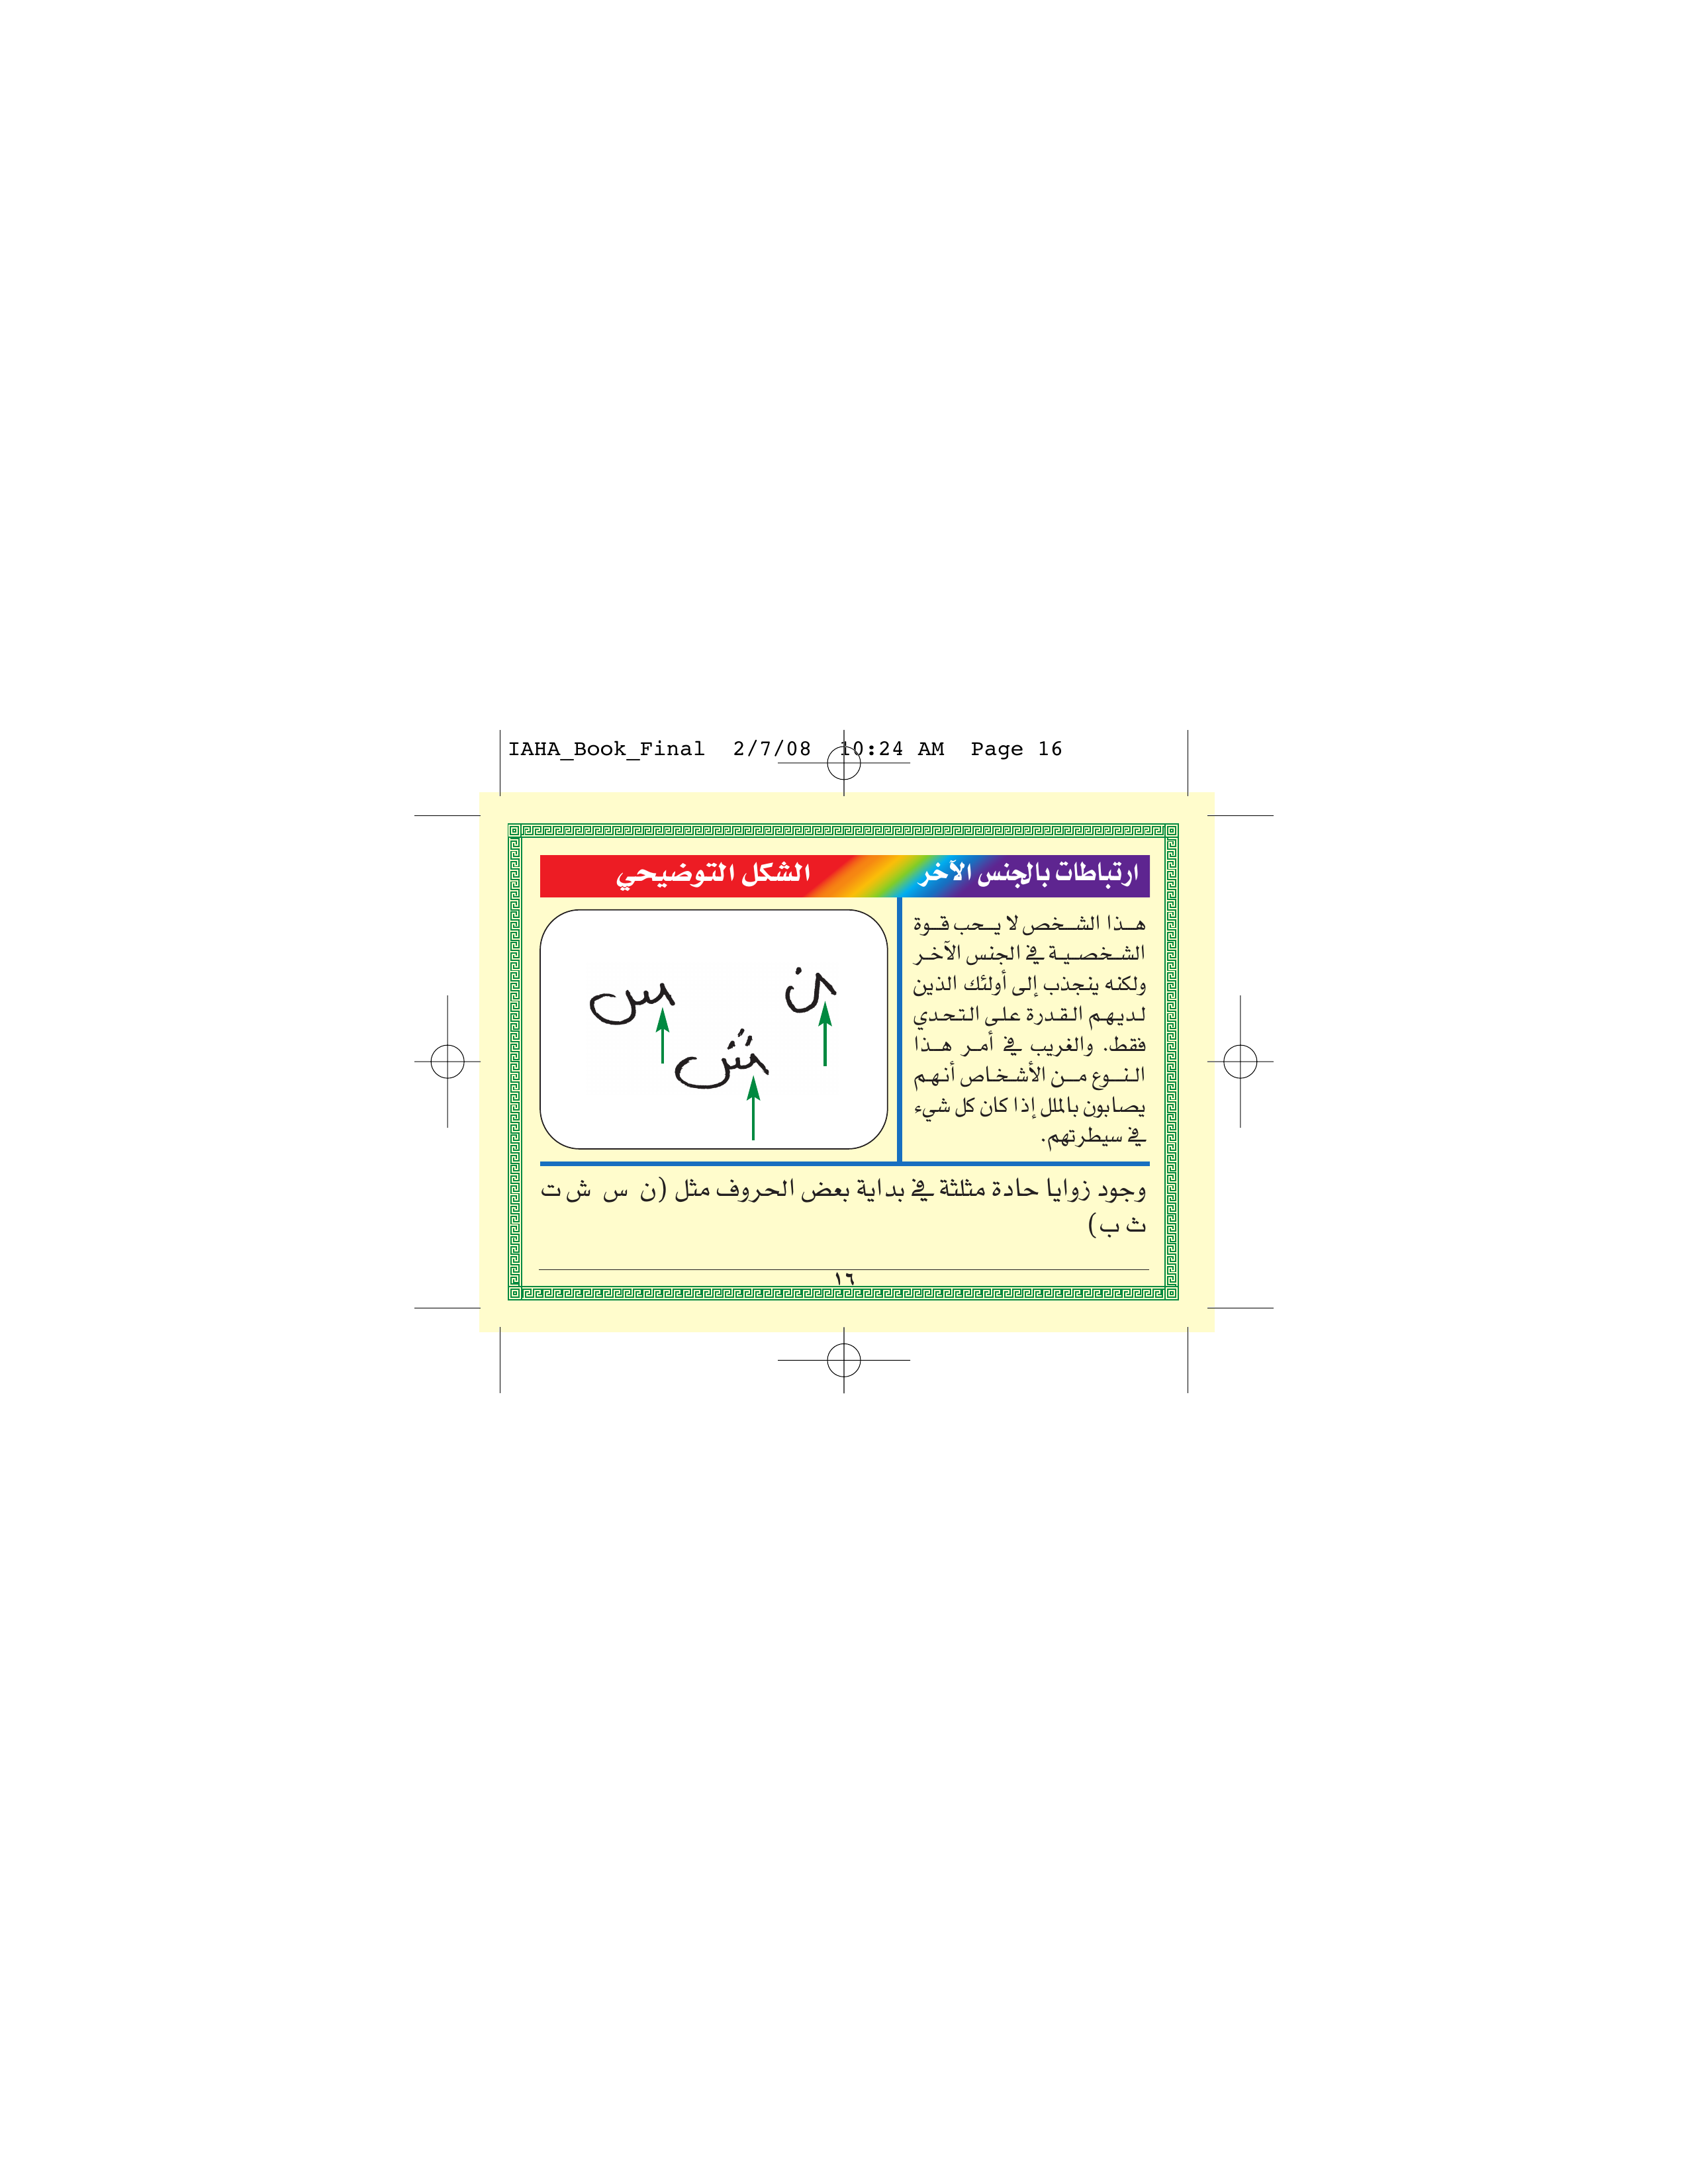 IAHA_Book_Final 2/7/08 10:24 AM Page 16
ارتباطات بالجنس الآخر
الشكل التوضيحي
هذا الشخص لا يحب قوة
الشخصية في الجنس الآخر
ولكنه ينجذب إلى أولئك الذين
لديهم القدرة على التحدي
فقط. والغريب في أمر هذا
النوع من الأشخاص أنهم
يصابون بالملل إذا كان كل شيء
في سيطرتهم.
ن
س
ش
وجود زوايا حادة مثلثة في بداية بعض الحروف مثل (ن س ش ت
ث ب)
١٦